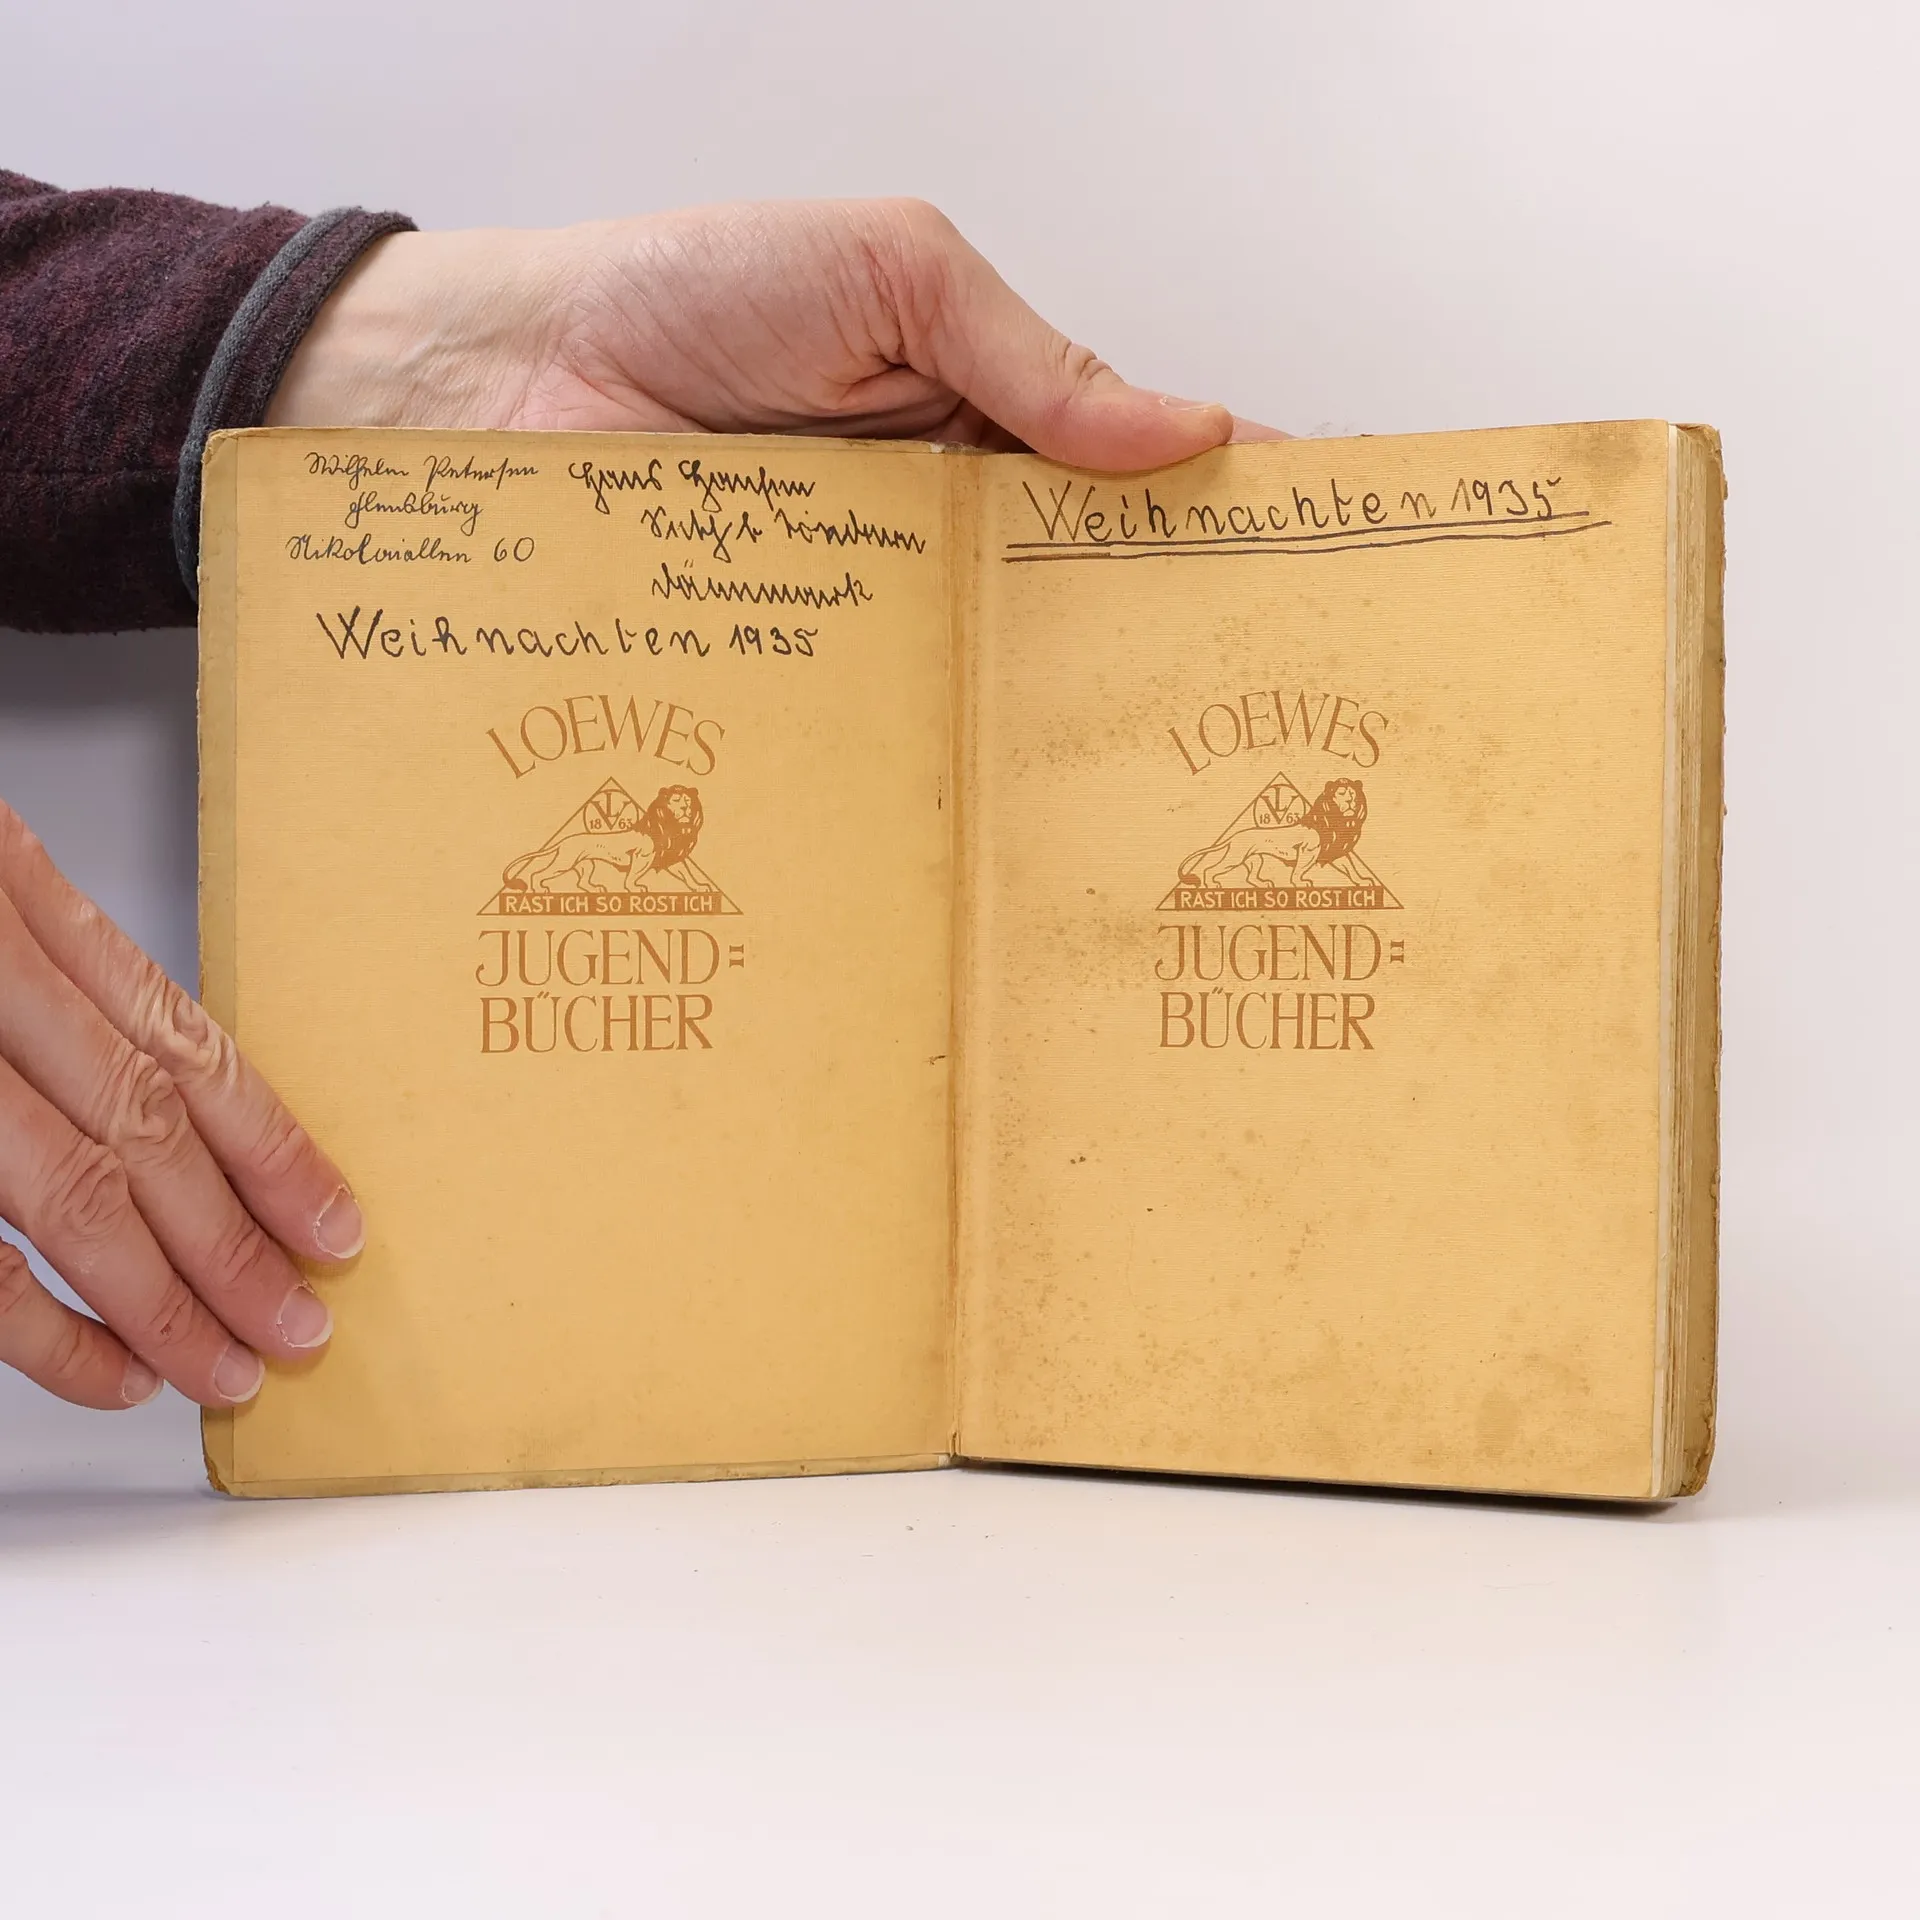 Wilhelm Petersen
Flensburg
Nikolaiallee 60
Hans Hansen
b Tondern
Dänemark
Weihnachten 1935
LOEWES
LV
18 63
RAST ICH SO ROST ICH
JUGEND=
BÜCHER
Weihnachten 1935
LOEWES
LV
18 63
RAST ICH SO ROST ICH
JUGEND=
BÜCHER